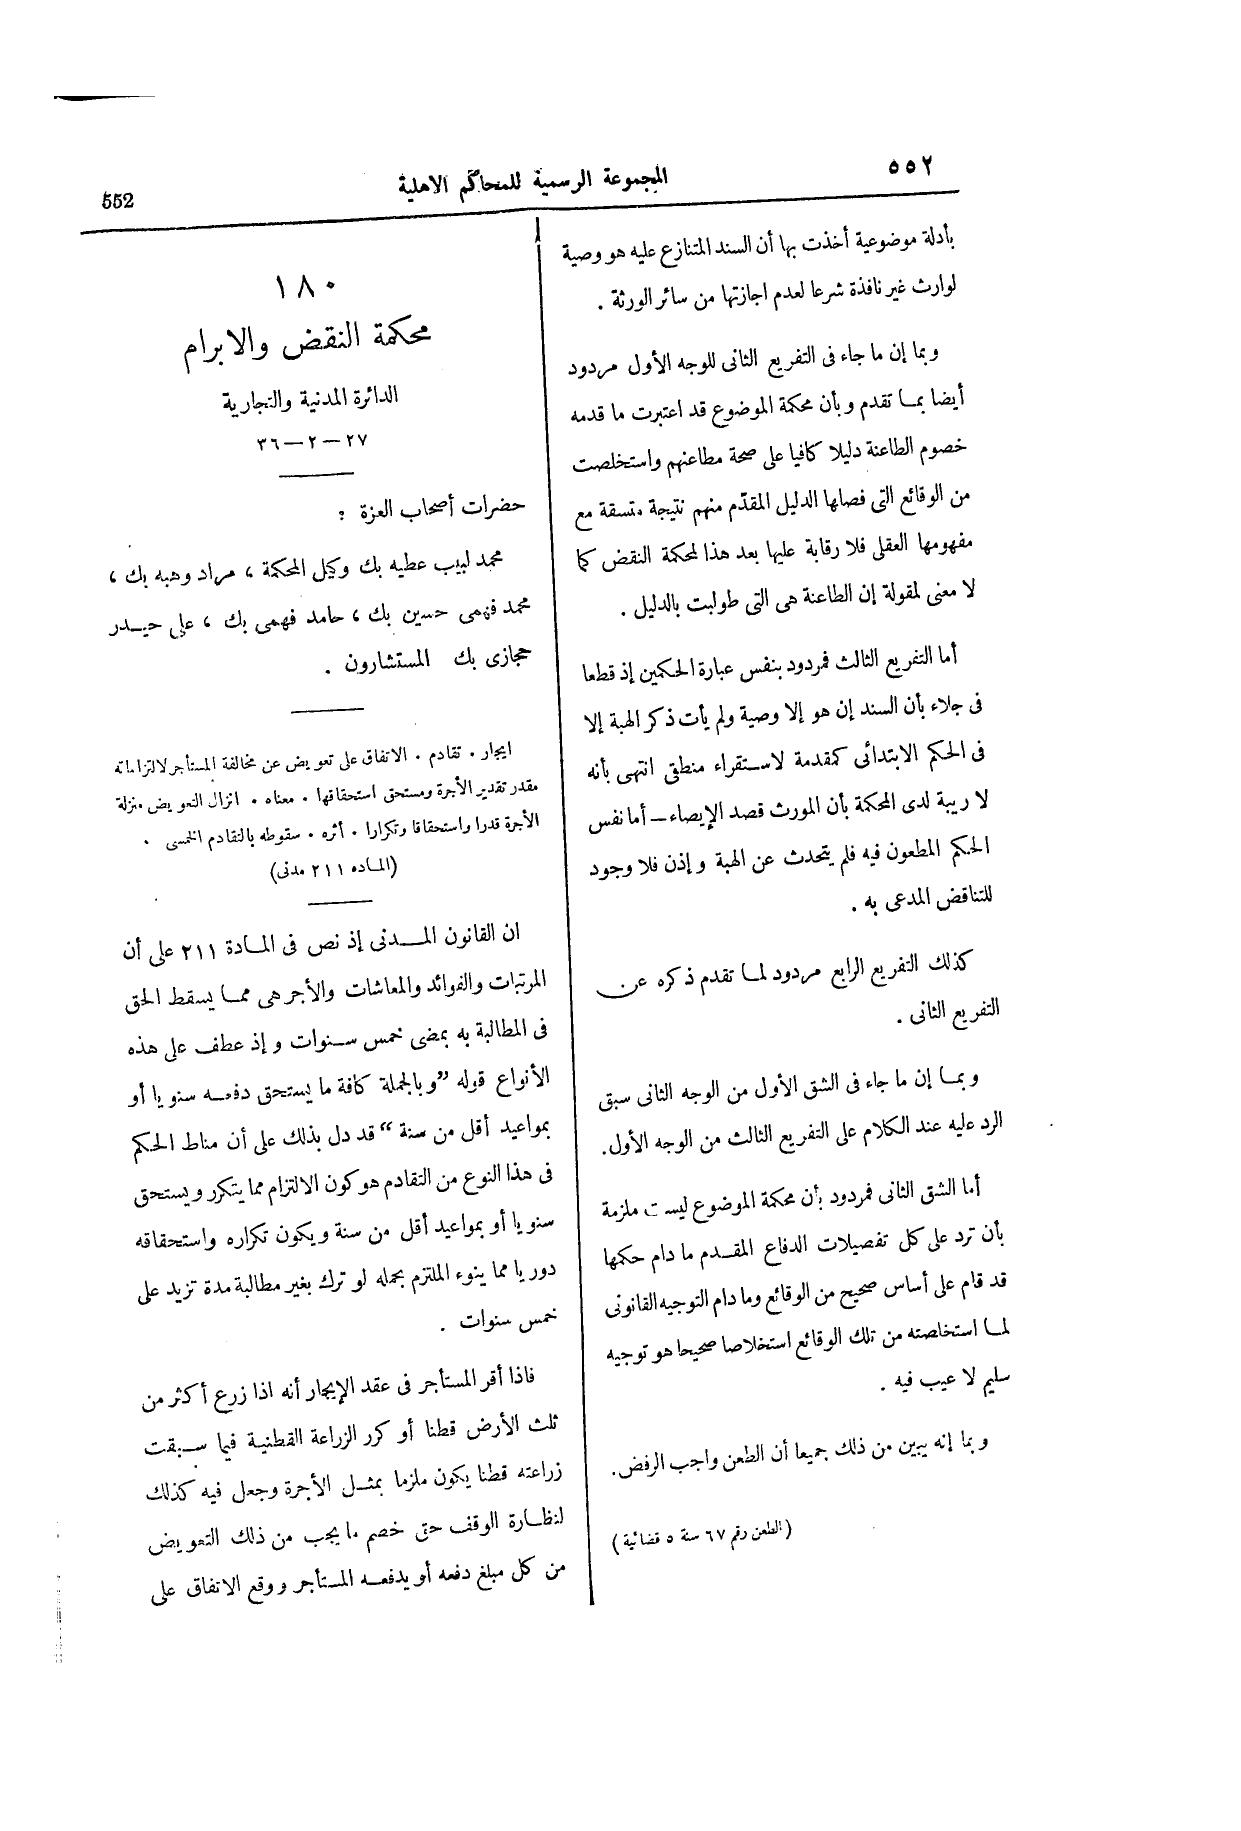 ٥٥٢
المجموعة الرسمية للمحاكم الاهلية
552
بأدلة موضوعية أخذت بها أن السند المتنازع عليه هو وصية
لوارث غير نافذة شرعا لعدم اجازتها من سائر الورثة .
وبما إن ما جاء فى التفريع الثانى للوجه الأول مردود
أيضا بمـا تقدم وبأن محكمة الموضوع قد اعتبرت ما قدمه
خصوم الطاعنة دليلا كافيا على صحة مطاعنهم واستخلصت
من الوقائع التى فصلها الدليل المقدّم منهم نتيجة متسقة مع
مفهومها العقلى فلا رقابة عليها بعد هذا لمحكمة النقض كما
لا معنى لمقولة إن الطاعنة هى التى طولبت بالدليل .
أما التفريع الثالث فمردود بنفس عبارة الحكمين إذ قطعا
فى جلاء بأن السند إن هو إلا وصية ولم يأت ذكر الهبة إلا
فى الحكم الابتدائى كمقدمة لاستقراء منطقى انتهى بأنه
لا ريبة لدى المحكمة بأن المورث قصد الإيصاء – أما نفس
الحكم المطعون فيه فلم يتحدث عن الهبة وإذن فلا وجود
للتناقض المدعى به .
كذلك التفريع الرابع مردود لمـا تقدم ذكره عن
التفريع الثانى .
وبمـا إن ما جاء فى الشق الأول من الوجه الثانى سبق
الرد عليه عند الكلام على التفريع الثالث من الوجه الأول.
أما الشق الثانى فمردود بأن محكمة الموضوع ليست ملزمة
بأن ترد على كل تفصيلات الدفاع المقـدم ما دام حكمها
قد قام على أساس صحيح من الوقائع وما دام التوجيه القانونى
لمـا استخلصته من تلك الوقائع استخلاصا صحيحا هو توجيه
سليم لا عيب فيه .
وبما إنه يبين من ذلك جميعا أن الطعن واجب الرفض.
(الطعن رقم ٦٧ سنة ٥ قضائية)
١٨٠
محكمة النقض والابرام
الدائرة المدنية والتجارية
٢٧ – ٢ – ٣٦
حضرات أصحاب العزة :
محمد لبيب عطيه بك وكيل المحكمة ، مراد وهبه بك ،
محمد فهمى حسين بك ، حامد فهمى بك ، على حيـدر
حجازى بك المستشارون .
ايجار . تقادم . الاتفاق على تعويض عن مخالفة المستأجر لالتزاماته
مقدر تقدير الأجرة ومستحق استحقاقها . معناه . انزال التعويض منزلة
الأجرة قدرا واستحقاقا وتكرارا . أثره . سقوطه بالتقادم الخمسى .
(المـاده ٢١١ مدنى)
ان القانون المـدنى إذ نص فى المـادة ٢١١ على أن
المرتبات والفوائد والمعاشات والأجر هى ممـا يسقط الحق
فى المطالبة به بمضى خمس سـنوات وإذ عطف على هذه
الأنواع قوله ”وبالجملة كافة ما يستحق دفعـه سنويا أو
بمواعيد أقل من سنة“ قد دل بذلك على أن مناط الحكم
فى هذا النوع من التقادم هو كون الالتزام مما يتكرر ويستحق
سنويا أو بمواعيد أقل من سنة ويكون تكراره واستحقاقه
دوريا مما ينوء الملتزم بحمله لو ترك بغير مطالبة مدة تزيد على
خمس سنوات .
فاذا أقر المستأجر فى عقد الإيجار أنه اذا زرع أكثر من
ثلث الأرض قطنا أو كرر الزراعة القطنية فيما سـبقت
زراعته قطنا يكون ملزما بمثـل الأجرة وجعل فيه كذلك
لنظـارة الوقف حق خصم ما يجب من ذلك التعويض
من كل مبلغ دفعه أو يدفعـه المستأجر ووقع الاتفاق على